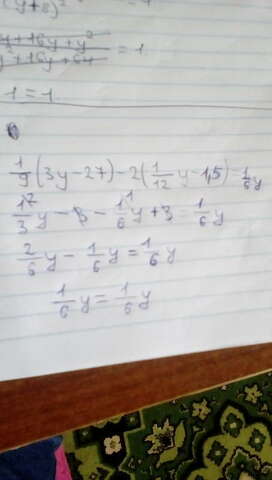 (y+8)²
y+16y+y²
y²+16y+64 = 1
1 = 1
1/9 (3y-27) - 2(1/12 y - 1,5) = 1/6 y
1/3 y - 3 - 1/6 y + 3 = 1/6 y
2/6 y - 1/6 y = 1/6 y
1/6 y = 1/6 y